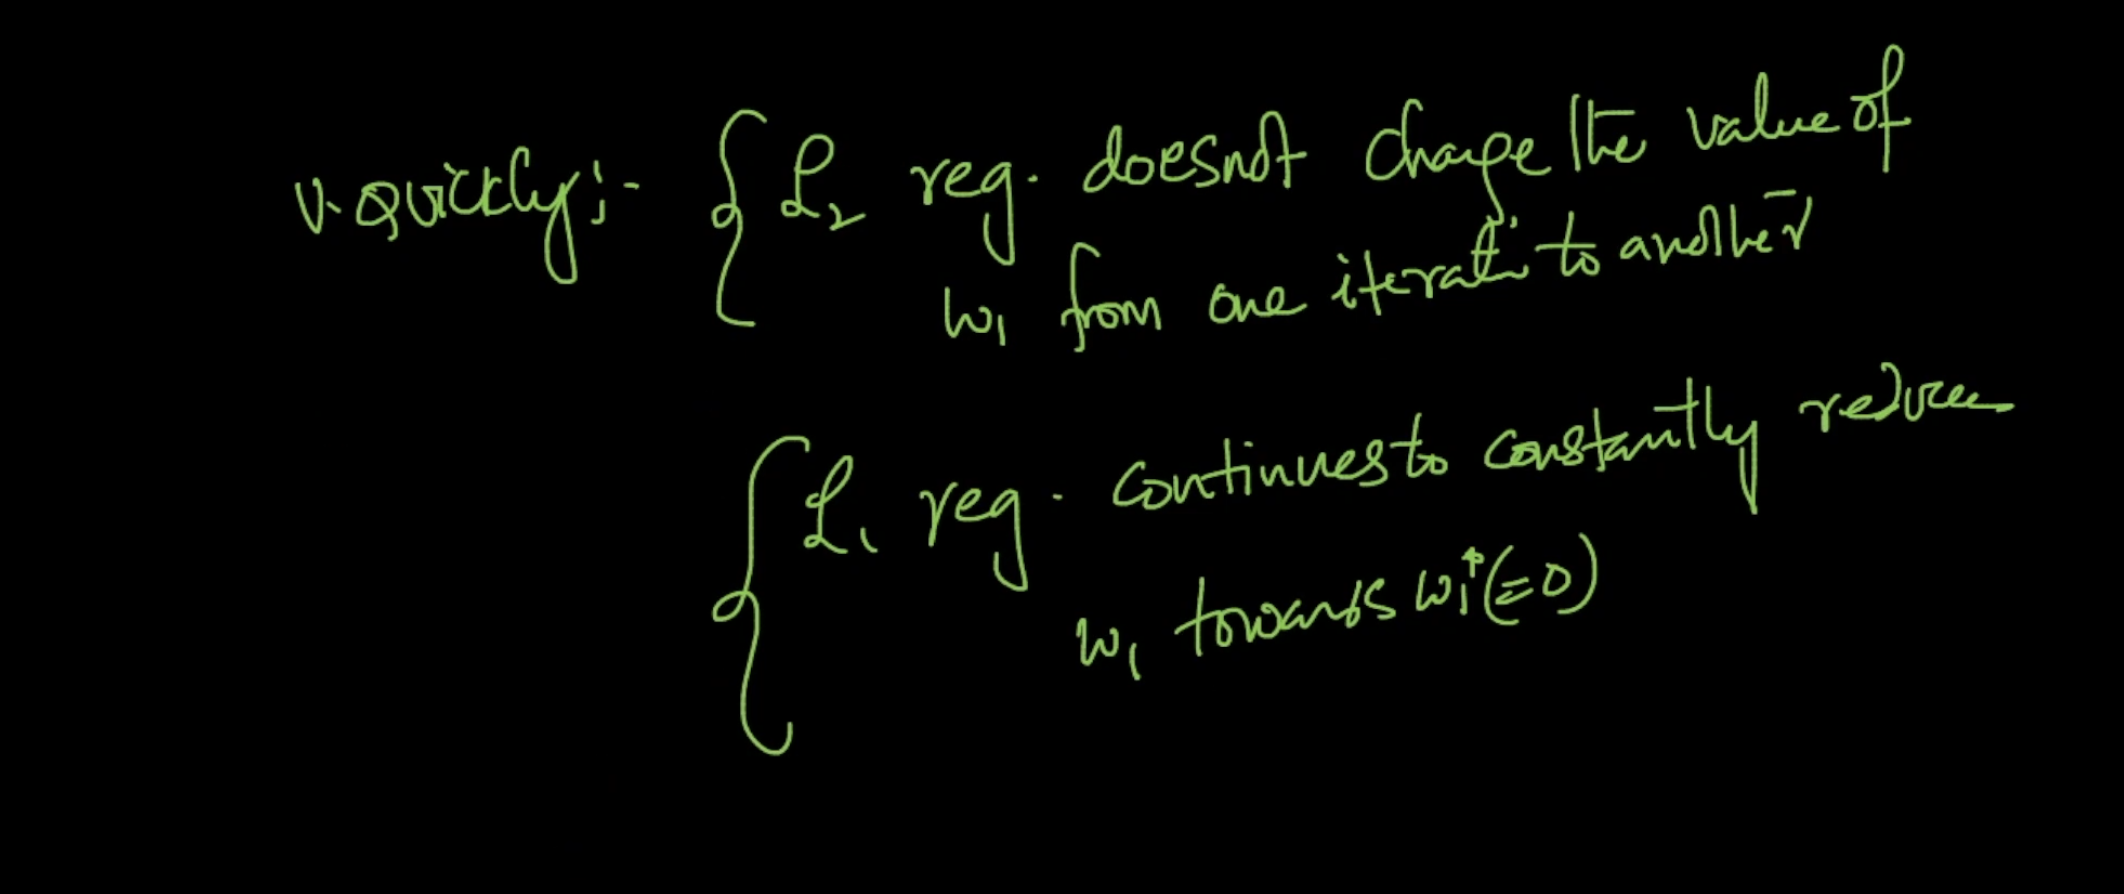 v. quickly:- { L2 reg. doesnot change the value of
w1 from one iterati to another
{ L1 reg. continues to constantly reduce
w1 towards w1*(=0)